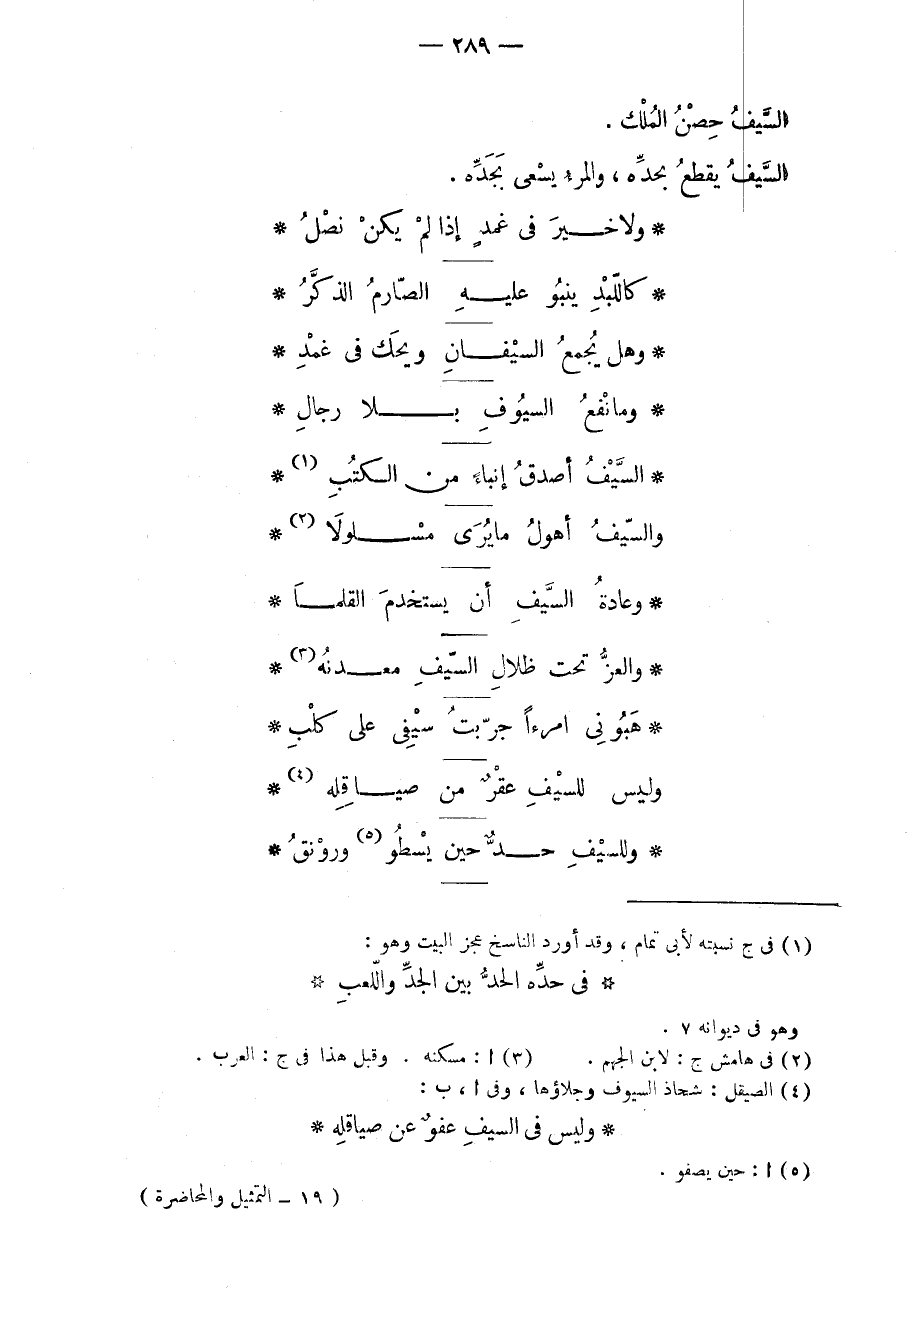 — ٢٨٩ —
السَّيفُ حِصْنُ المُلْك .
السَّيفُ يقطعُ بحدِّه ، والمرء يسْعى بَجَدِّه .
* ولا خـــيرَ فى غمدٍ إذا لمْ يكنْ نصْلُ *
* كاللّبْدِ ينبُو عليـــهِ الصّارمُ الذكَّرُ *
* وهل يُجمعُ السيْفـــانِ ويحَك فى غمْدِ *
* وما نْفعُ السيُوفِ بـــــلا رجالِ *
* السَّيْفُ أصدقُ إنباءً من الـكتُبِ (١) *
والسّيفُ أهولُ مايُرَى مسْـــلولَا (٢) *
* وعادةُ السَّيفِ أن يستخدمَ القلمـــاَ *
* والعزُّ تحت ظلالِ السّيفِ معـــدنُه (٣) *
* هَبُونِى امرءاً جرّبتُ سيْفِى على كلْبِ *
وليس للسيْفِ عقْرٌ من صيـــاقِلِه (٤) *
* وللسيْفِ حـــدٌّ حين يسْطُو (٥) وروْنقُ *
(١) فى ج نسبته لأبى تمام ، وقد أورد الناسخ عجز البيت وهو :
* فى حدِّه الحدُّ بين الجدِّ واللّعبِ *
وهو فى ديوانه ٧ .
(٢) فى هامش ج : لابن الجهم . (٣) ا : مسكنه . وقبل هذا فى ج : العرب .
(٤) الصيقل : شحاذ السيوف وجلاؤها ، وفى ا ، ب :
* وليس فى السيفِ عفوٌ عن صياقلِه *
(٥) ا : حين يصفو .
( ١٩ – التمثيل والمحاضرة )